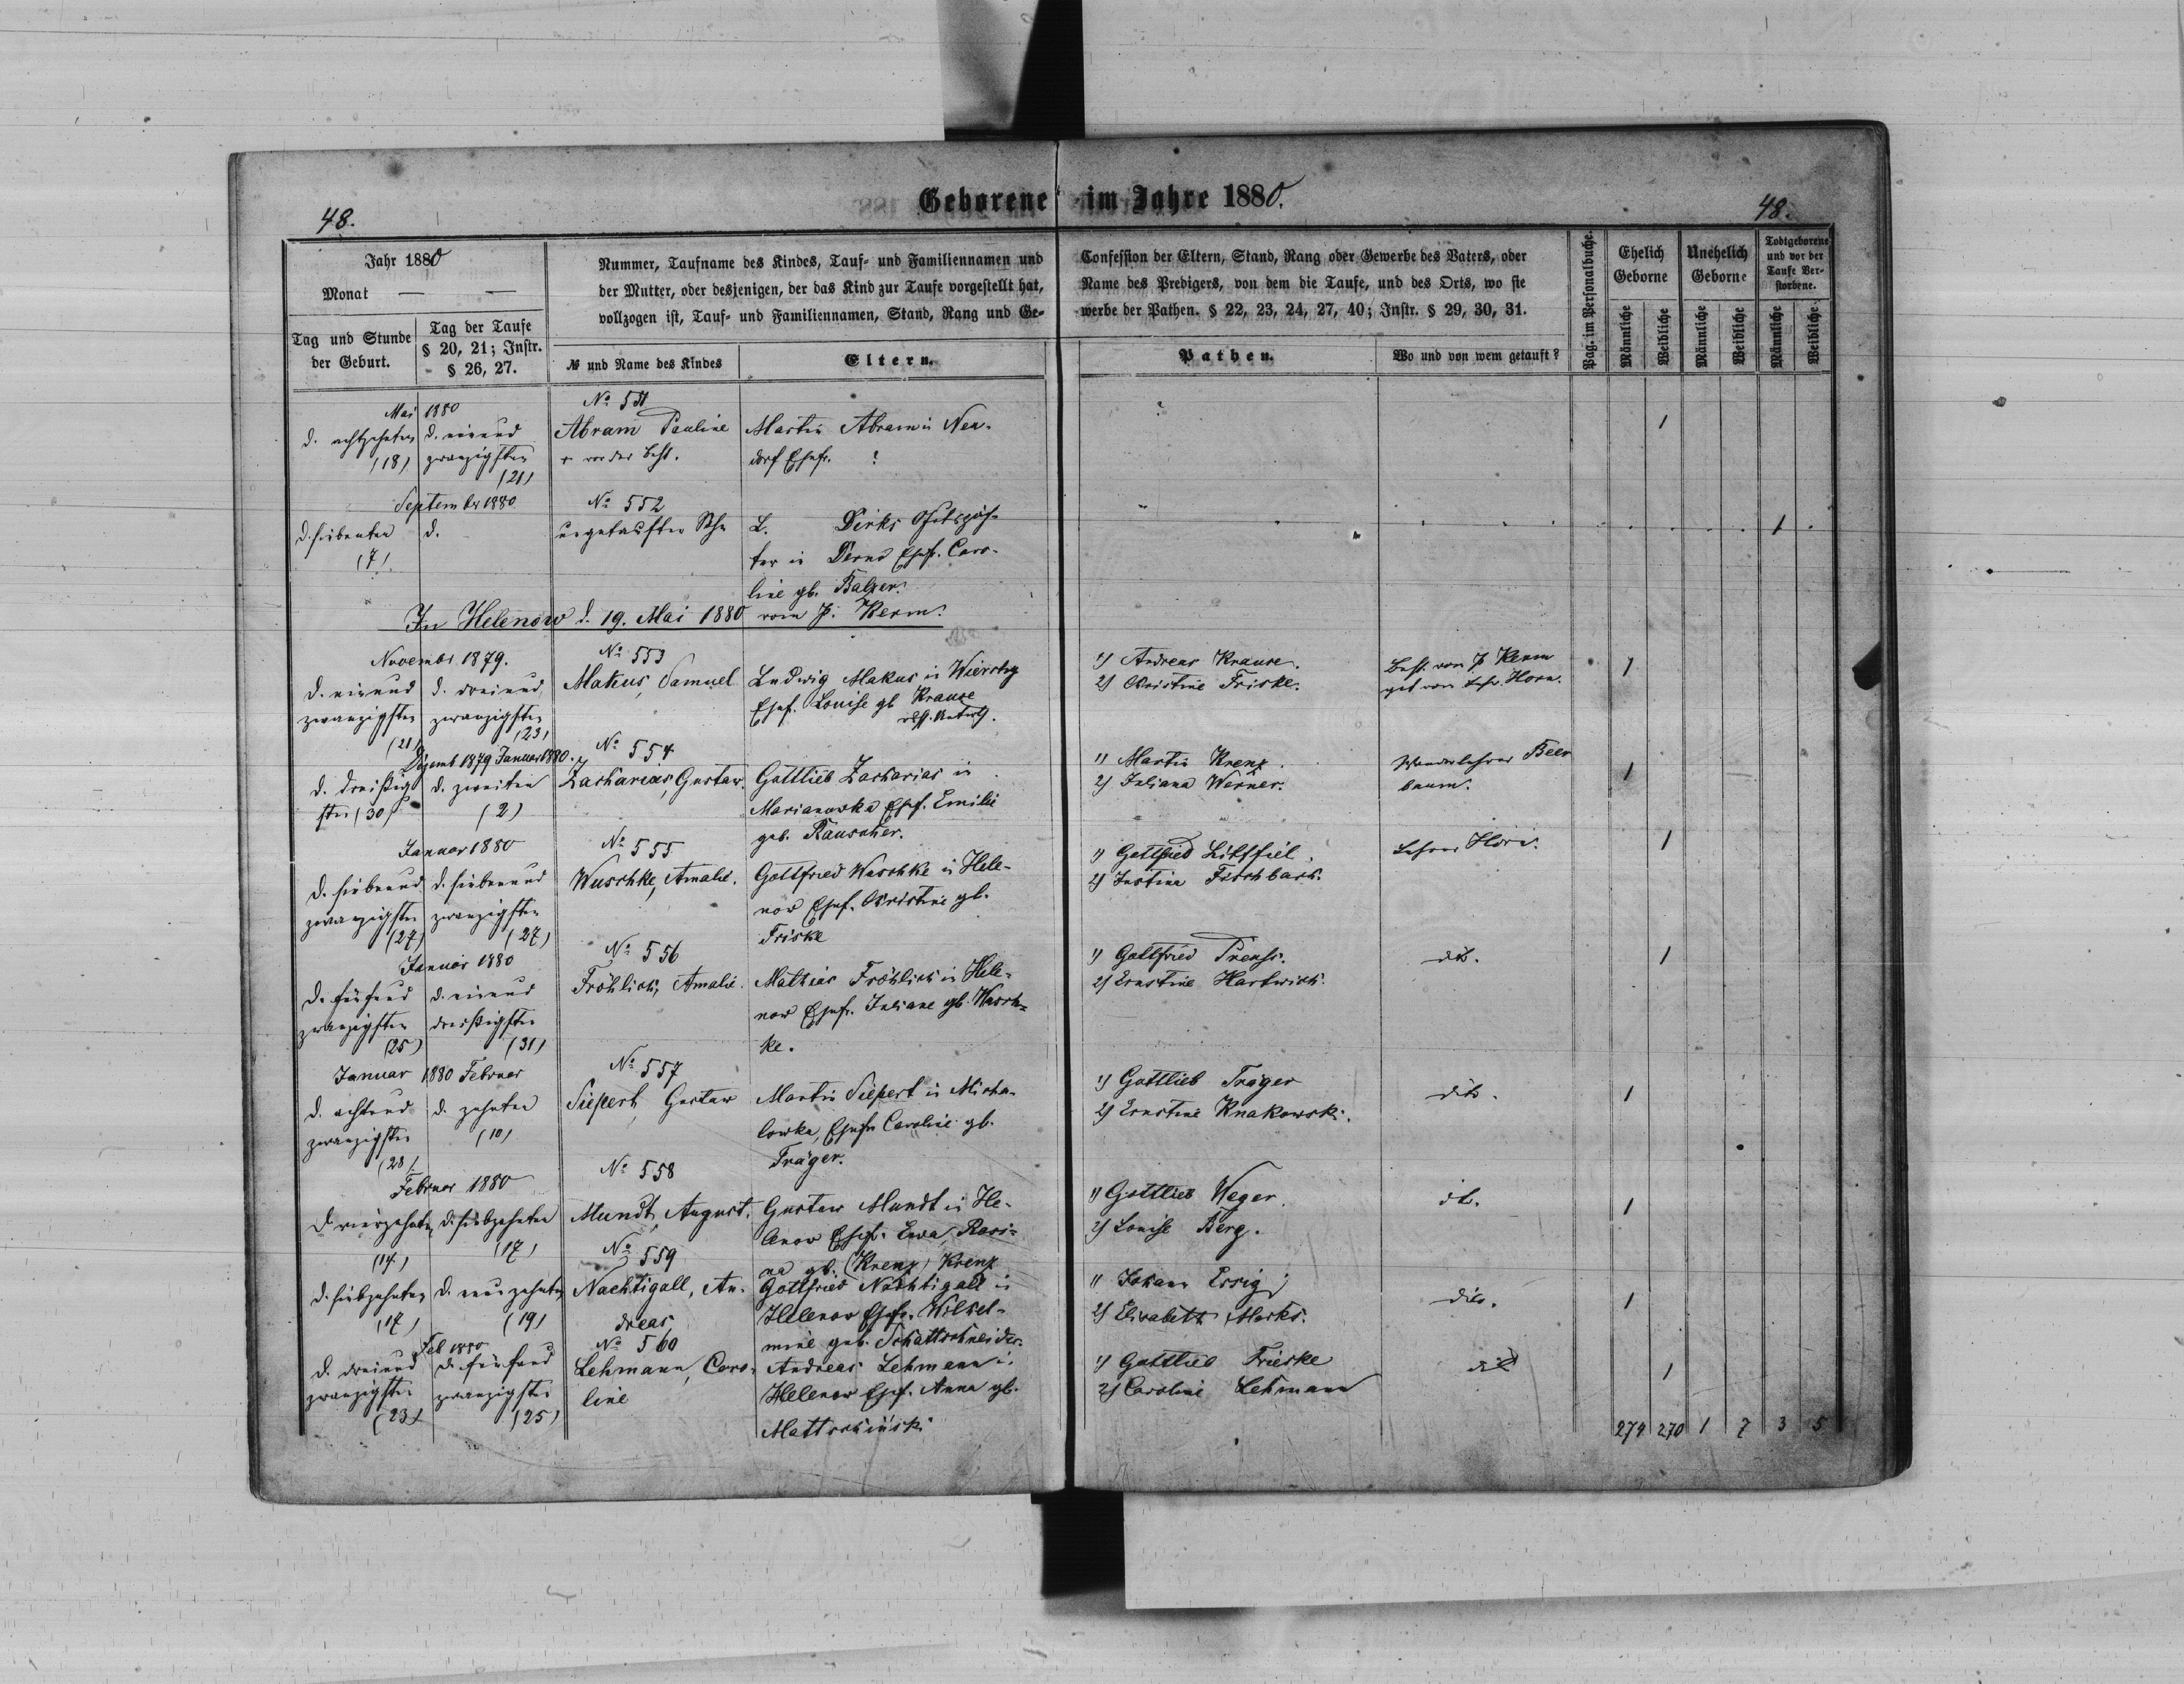 Geborene im Jahre 1880.
48.
48.
Jahr 1880
Monat — —
Tag und Stunde der Geburt.
Tag der Taufe § 20, 21; Instr. § 26, 27.
Nummer, Taufname des Kindes, Tauf- und Familiennamen und
der Mutter, oder desjenigen, der das Kind zur Taufe vorgestellt hat,
vollzogen ist, Tauf- und Familiennamen, Stand, Rang und Ge-
№ und Name des Kindes
Eltern.
Confession der Eltern, Stand, Rang oder Gewerbe des Vaters, oder
Name des Predigers, von dem die Taufe, und des Orts, wo sie
werbe der Pathen. § 22, 23, 24, 27, 40; Instr. § 29, 30, 31.
Pathen.
Wo und von wem getauft?
Pag. im Personalbuche.
Ehelich Geborne
Unehelich Geborne
Todtgeborene und vor der Taufe Verstorbene.
Männliche
Weibliche
Männliche
Weibliche
Männliche
Weibliche
Mai 1880
No 551
d. achtzehnten d. einund Abram Pauline Martin Abram in Neu- 1
(18) zwanzigsten + vor der Best. dorf Ehefr. ?
(21)
September 1880
No 552
d. siebenten d. ungetaufter Sohn L. Dirks 1
(7) ter in Dernd Ehefr. Caro-
line gb. Balzer.
In Helenow d. 19. Mai 1880 vom P. Kerm.
Novembr 1879.
No 553
d. einund d. dreiund Makus, Samuel Ludwig Makus in 1) Andreas Krause. Best. von P. Kerm 1
zwanzigsten zwanzigsten Ehef. Louise gb Krause 2) Christine Friske. get von Lehr. Horn.
(21) (23)
Dezemb 1879 Januar 1880.
No 554
d. dreißig d. zweiten Zacharias, Gustav. Gottlieb Zacharias in 1) Martin Krenz. Wanderlehrer Beer 1
sten (30) (2) Marianowka Ehef. Emilie 2) Juliana Werner. baum.
geb. Rauscher.
Januar 1880
No 555
d. siebenund d. siebenund Waschke, Amalie. Gottfried Waschke in Hele- 1) Gottfried Lehrer Horn. 1
zwanzigsten zwanzigsten now Ehef. Christine gb. 2) Justina Fischbach.
(27) (27) Friske
Januar 1880
No 556
d. fünfund d. einund Fröhlich, Amalie. Mathias Fröhlich in Hele- 1) Gottfried Preuss. dit. 1
zwanzigsten dreißigsten now Ehefr. Juliane gb. Wasch- 2) Ernstine Hartwich.
(25) (31) ke.
Januar 1880 Februar
No 557
d. achtund d. zehnten Siepert, Gustav Martin Siepert in Micha- 1) Gottlieb Träger dito. 1
zwanzigsten (10) lowka, Ehefr Caroline gb. 2) Ernstine Knakowski.
(28) Träger.
Februar 1880
No 558
d. vierzehnten d. siebzehnten Mundt, August. Gustav Mundt in He- 1) Gottlieb Weger. dt. 1
(14) (17) lenow Ehef. Ewa, Rosi- 2) Louise Berg.
na gb. (Krenz) Krenz
No 559
d. siebzehnten d. neunzehnten Nachtigall, An- Gottfried Nachtigall in 1) Johann Essig dito. 1
(17) (19) dreas Helenow Ehefr. Wilhel- 2) Elisabeth Marks.
mine geb. Schattschneider.
Feb 1880
No 560
d. dreiund d. fünfund Lehmann, Caro- Andreas Lehmann in 1) Gottlieb Frieske dit 1
zwanzigsten zwanzigsten line Helenow Ehef. Anna gb. 2) Caroline Lehmann
(23) (25) Mattschinski
274 270 1 7 3 5